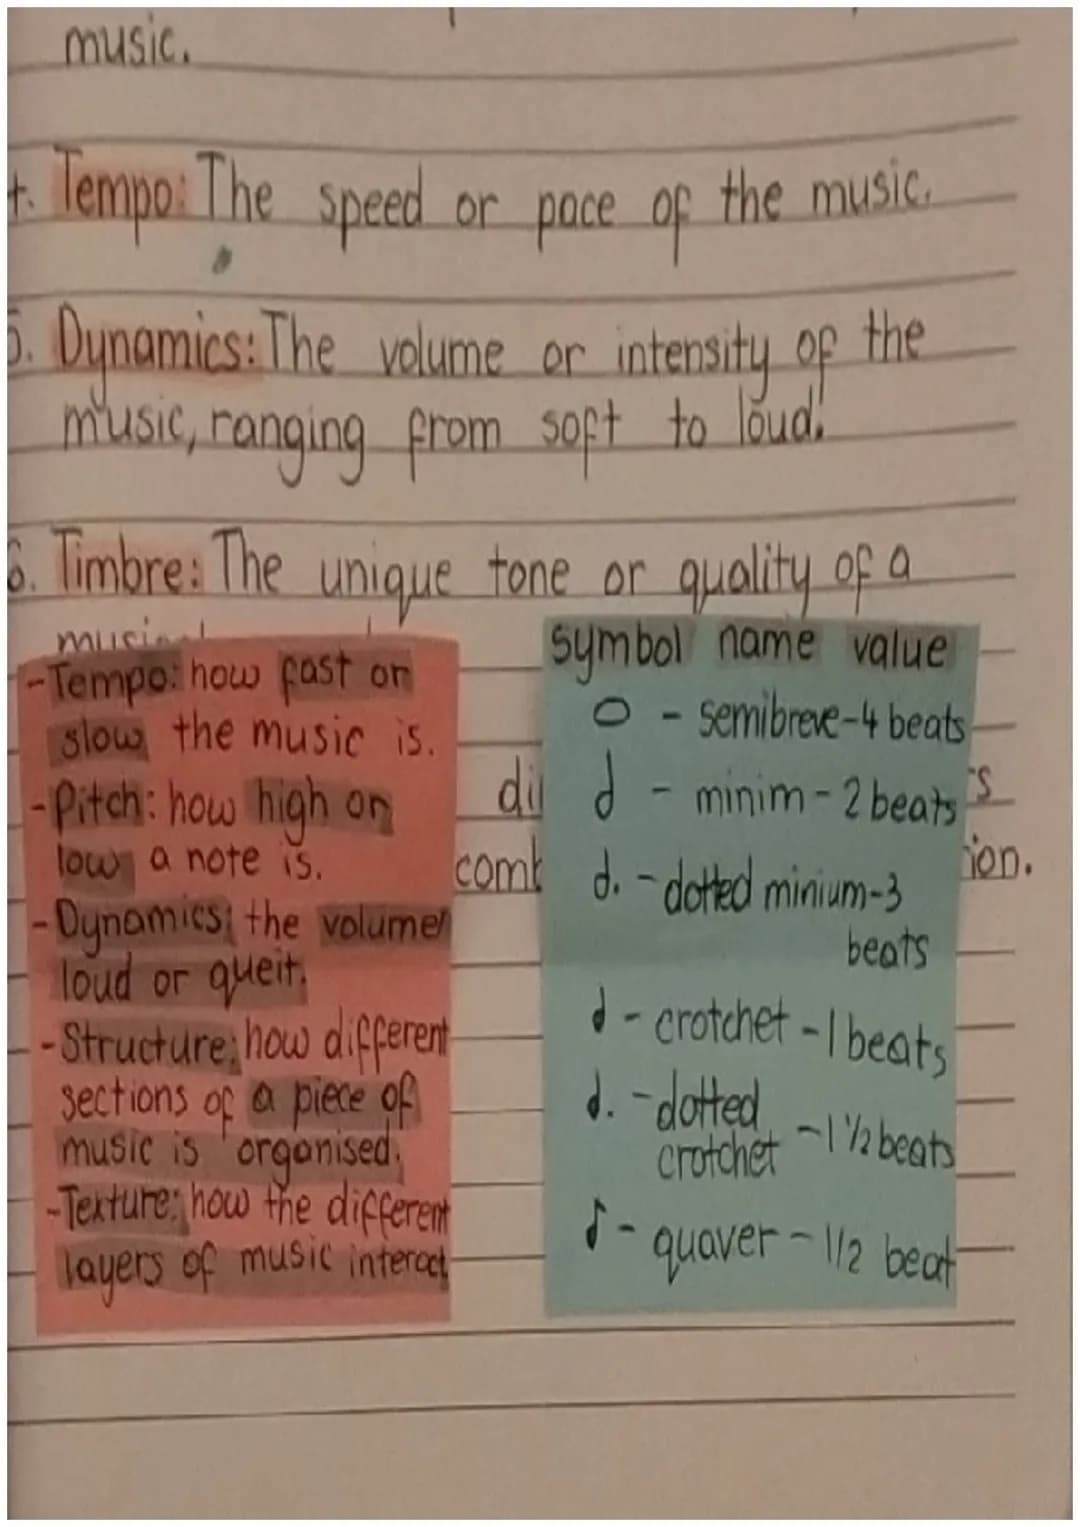 music.
4. Tempo: The speed or pace of the music.
5. Dynamics: The volume or intensity of the
music, ranging from soft to loud.
6. Timbre: The unique tone or quality of a
-Tempo: how fast or
slow the music is.
-Pitch: how high or
low a note is.
-Dynamics: the volume
loud or queit.
-Structure: how different
sections of a piece of
music is organised.
-Texture: how the different
layers of music interact
symbol name value
- semibreve-4 beats
- minim - 2 beats
- dotted minium-3
beats
- crotchet - 1 beats
- dotted
crotchet - 1 1/2 beats
- quaver - 1/2 beat